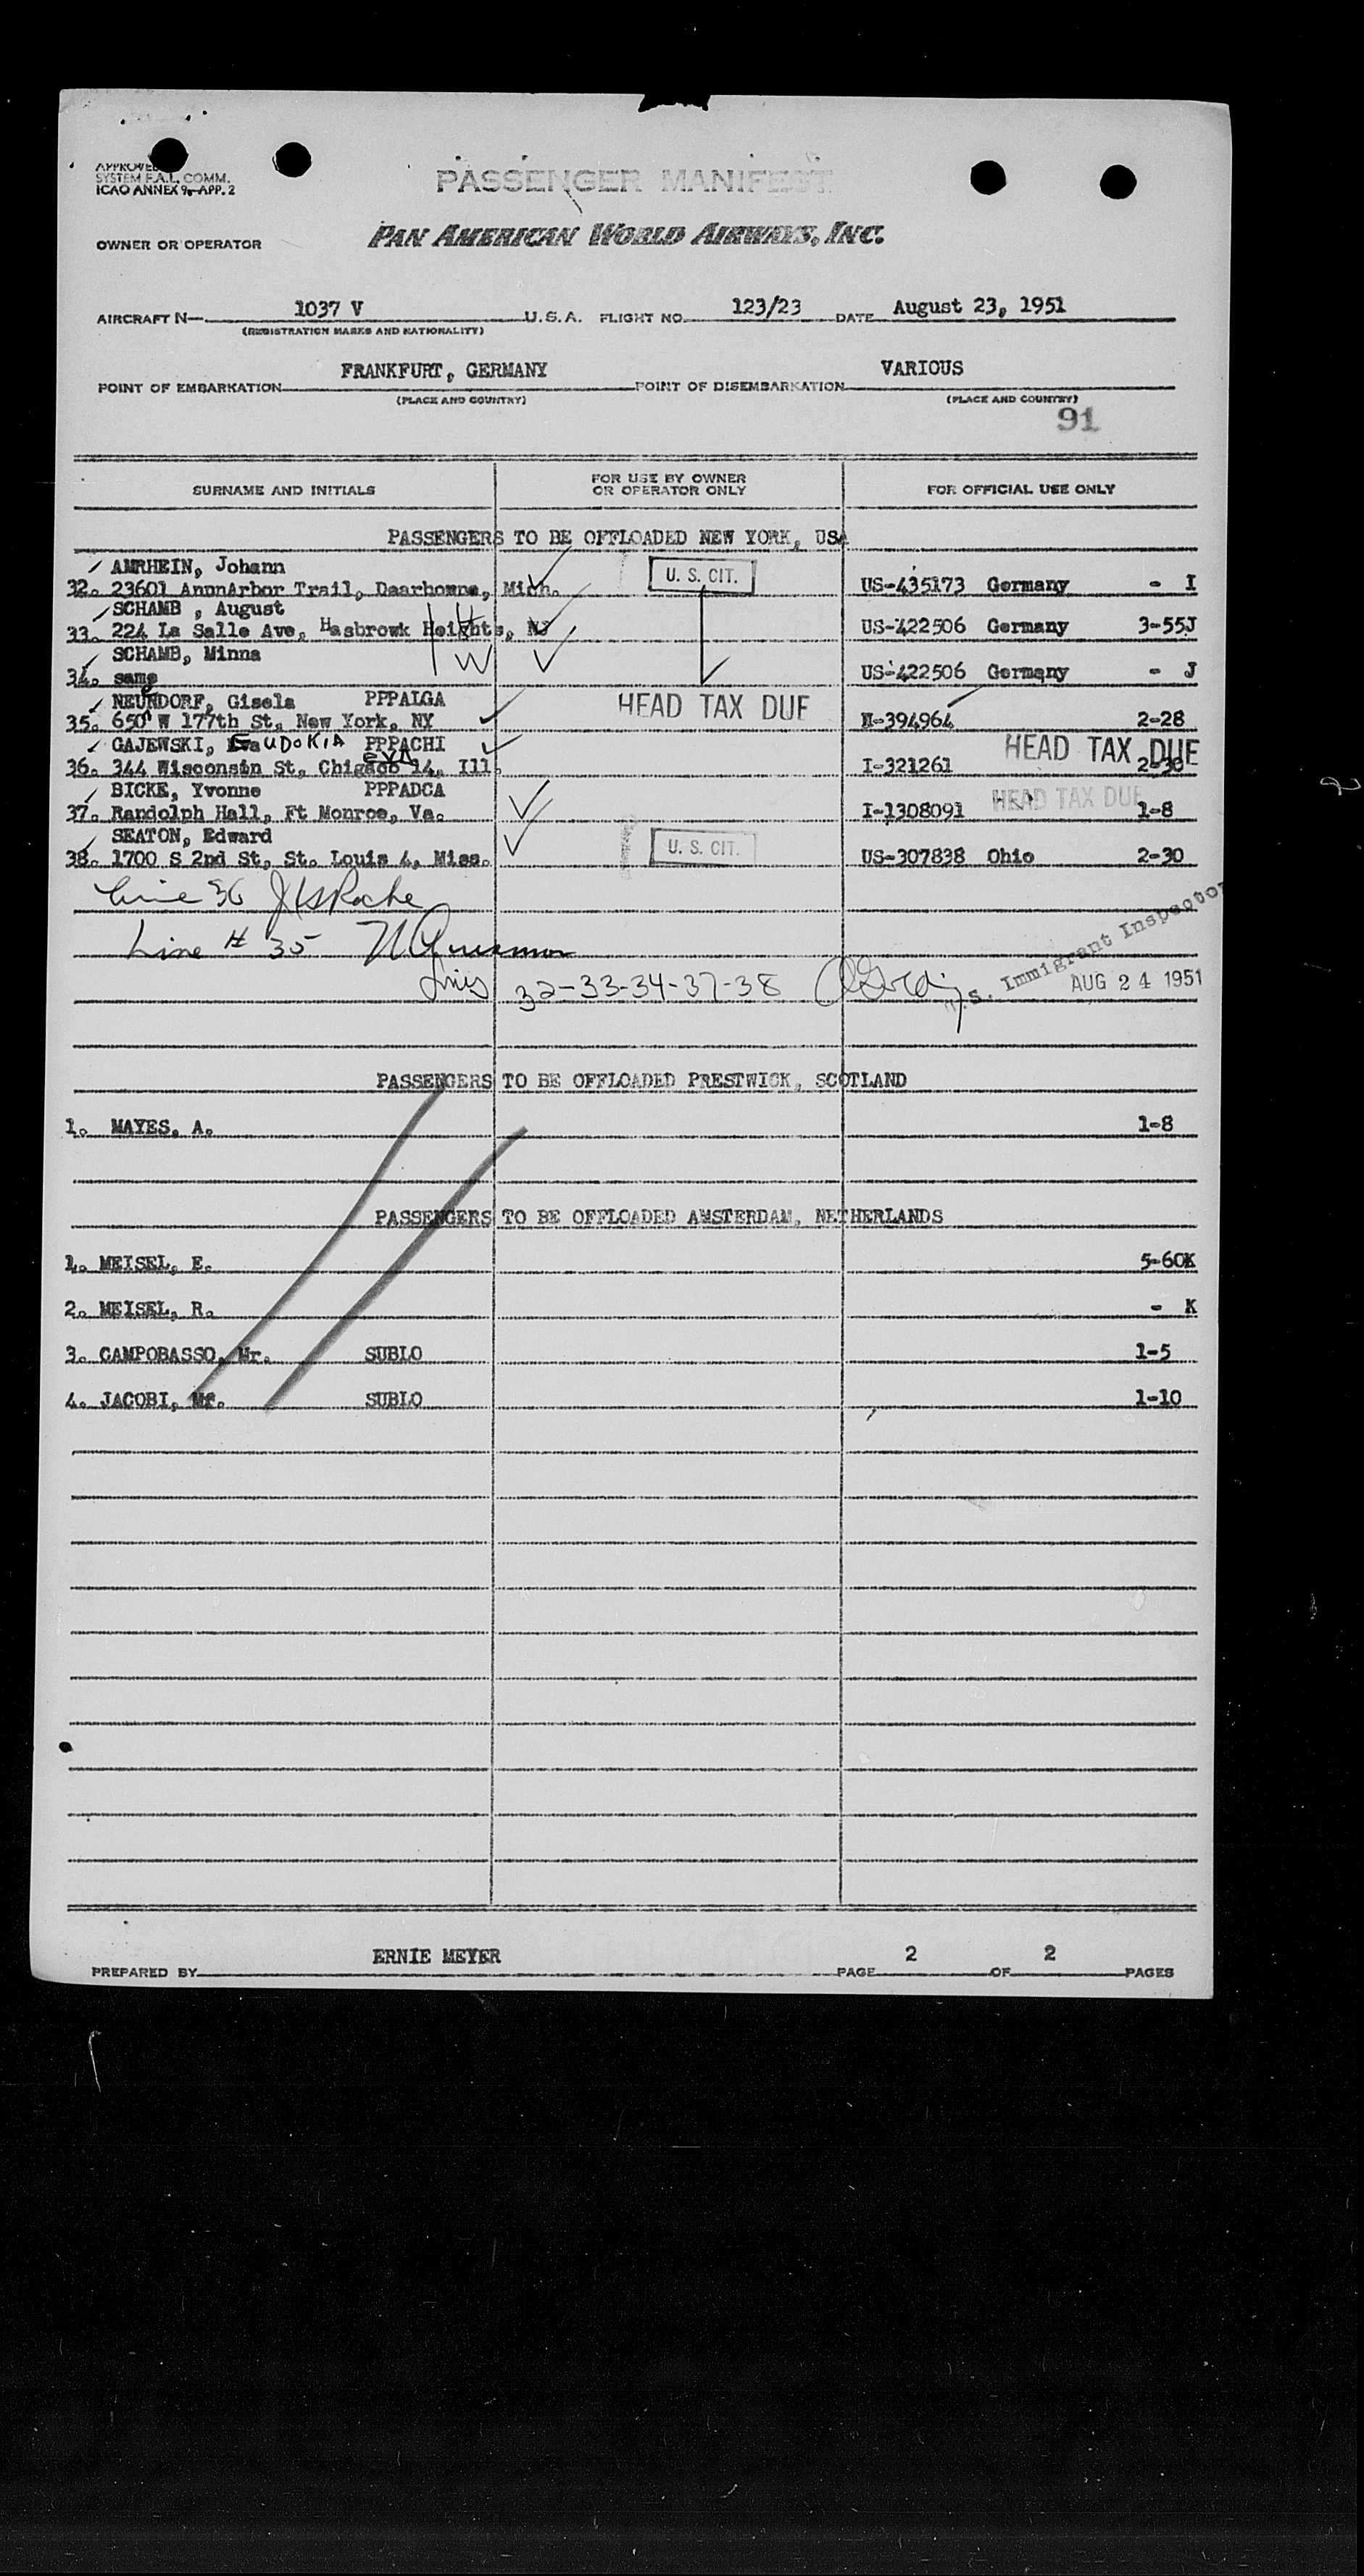 APPROVED
SYSTEM F.A.L. COMM.
ICAO ANNEX 9-APP. 2
PASSENGER MANIFEST
OWNER OR OPERATOR PAN AMERICAN WORLD AIRWAYS, INC.
AIRCRAFT N— 1037 V U.S.A. FLIGHT NO. 123/23 DATE August 23, 1951
(REGISTRATION MARKS AND NATIONALITY)
POINT OF EMBARKATION FRANKFURT, GERMANY POINT OF DISEMBARKATION VARIOUS
(PLACE AND COUNTRY) (PLACE AND COUNTRY)
91
SURNAME AND INITIALS FOR USE BY OWNER OR OPERATOR ONLY FOR OFFICIAL USE ONLY
PASSENGERS TO BE OFFLOADED NEW YORK, USA
AMRHEIN, Johann U. S. CIT.
32. 23601 AnnnArbor Trail, Daarhowne, Mich. US-435173 Germany - I
SCHAMB , August
33. 224 La Salle Ave, Hasbrowk Heights, NJ US-422506 Germany 3-55J
SCHAMB, Minna W
34. same US-422506 Germany - J
NEUNDORF, Gisela PPPALGA HEAD TAX DUE
35. 650 W 177th St, New York, NY -394964 2-28
GAJEWSKI, Eva EUDOKIA PPPACHI HEAD TAX DUE
EVA
36. 344 Wisconsin St, Chigaco 14, Ill. I-321261 2-30
BICKE, Yvonne PPPADCA HEAD TAX DUE
37. Randolph Hall, Ft Monroe, Va. I-1308091 1-8
SEATON, Edward U. S. CIT.
38. 1700 S 2nd St, St. Louis 4, Miss. US-307838 Ohio 2-30
Line 36
Line # 35
Lines 32-33-34-37-38 U.S. Immigrant Inspector
AUG 24 1951
PASSENGERS TO BE OFFLOADED PRESTWICK, SCOTLAND
1. MAYES, A. 1-8
PASSENGERS TO BE OFFLOADED AMSTERDAM, NETHERLANDS
1. MEISEL, E. 5-60K
2. MEISEL, R. - K
3. CAMPOBASSO, Mr. SUBLO 1-5
4. JACOBI, Mr. SUBLO 1-10
PREPARED BY ERNIE MEYER PAGE 2 OF 2 PAGES